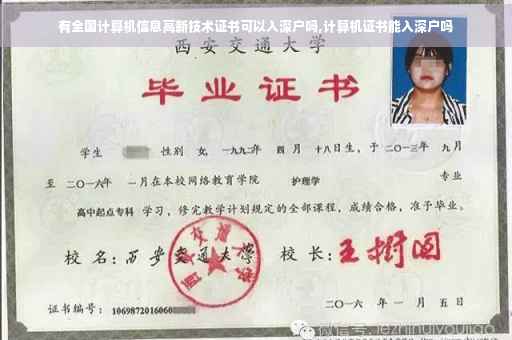 有全国计算机信息高新技术证书可以入深户吗,计算机证书能入深户吗
西安交通大学
毕业证书
学生 性别 女, 一九九二年 四月 十八日生, 于 二〇一三年 九月
至 二〇一六年 一月在本校网络教育学院 护理学 专业
高中起点专科 学习, 修完教学计划规定的全部课程, 成绩合格, 准予毕业。
校名: 西安交通大学 校长: 王树国
西安交通大学
证书编号: 1069872016060
二〇一六年 一月 五日
微信号: jiezhinuiyoujiao